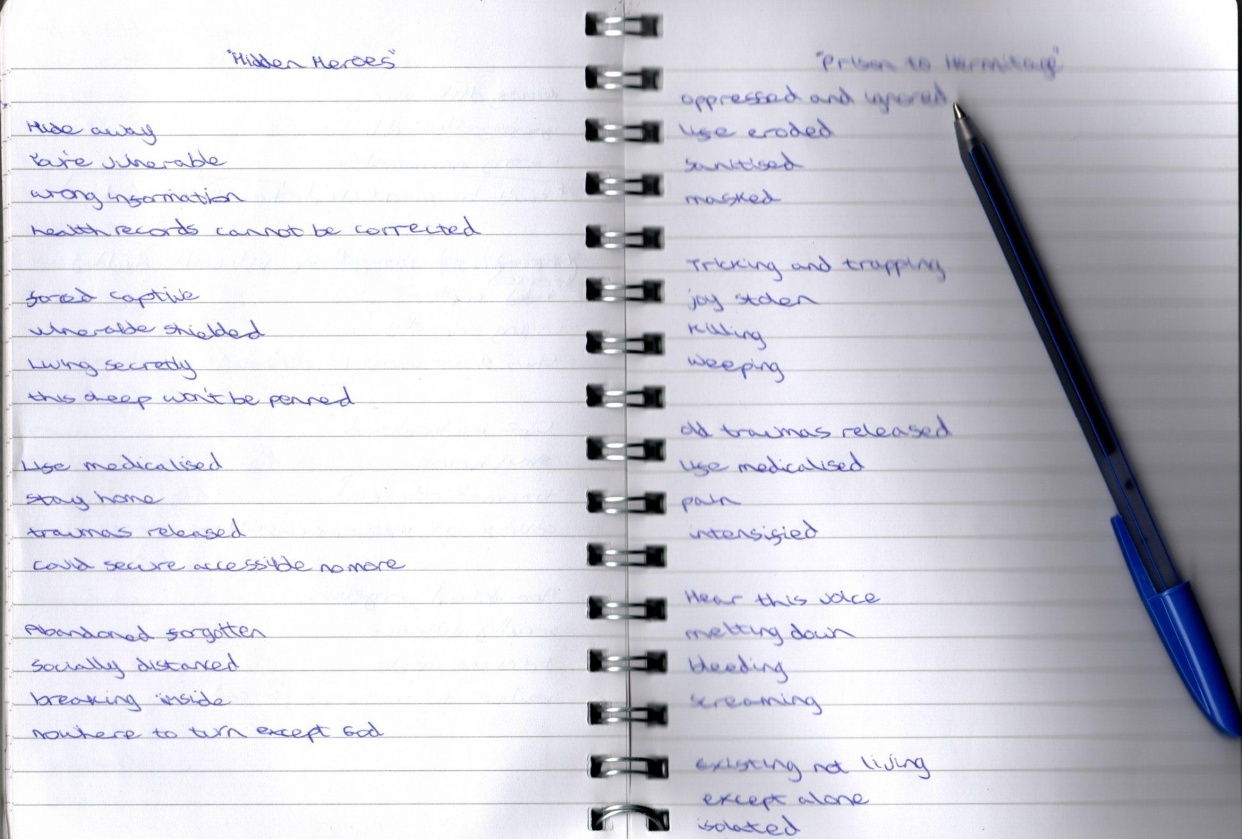 "Hidden Heroes"
Hide away
You're vulnerable
wrong information
health records cannot be corrected
forced captive
vulnerable shielded
Living secretly
this sheep won't be penned
Life medicalised
stay home
traumas released
covid secure accessible no more
Abandoned forgotten
socially distanced
breaking inside
nowhere to turn except God
"Prison to Hermitage"
oppressed and ignored
Life eroded
sanitised
masked
Tricking and trapping
joy stolen
Killing
weeping
old traumas released
Life medicalised
pain
intensified
Hear this voice
melting down
bleeding
screaming
existing not living
except alone
isolated